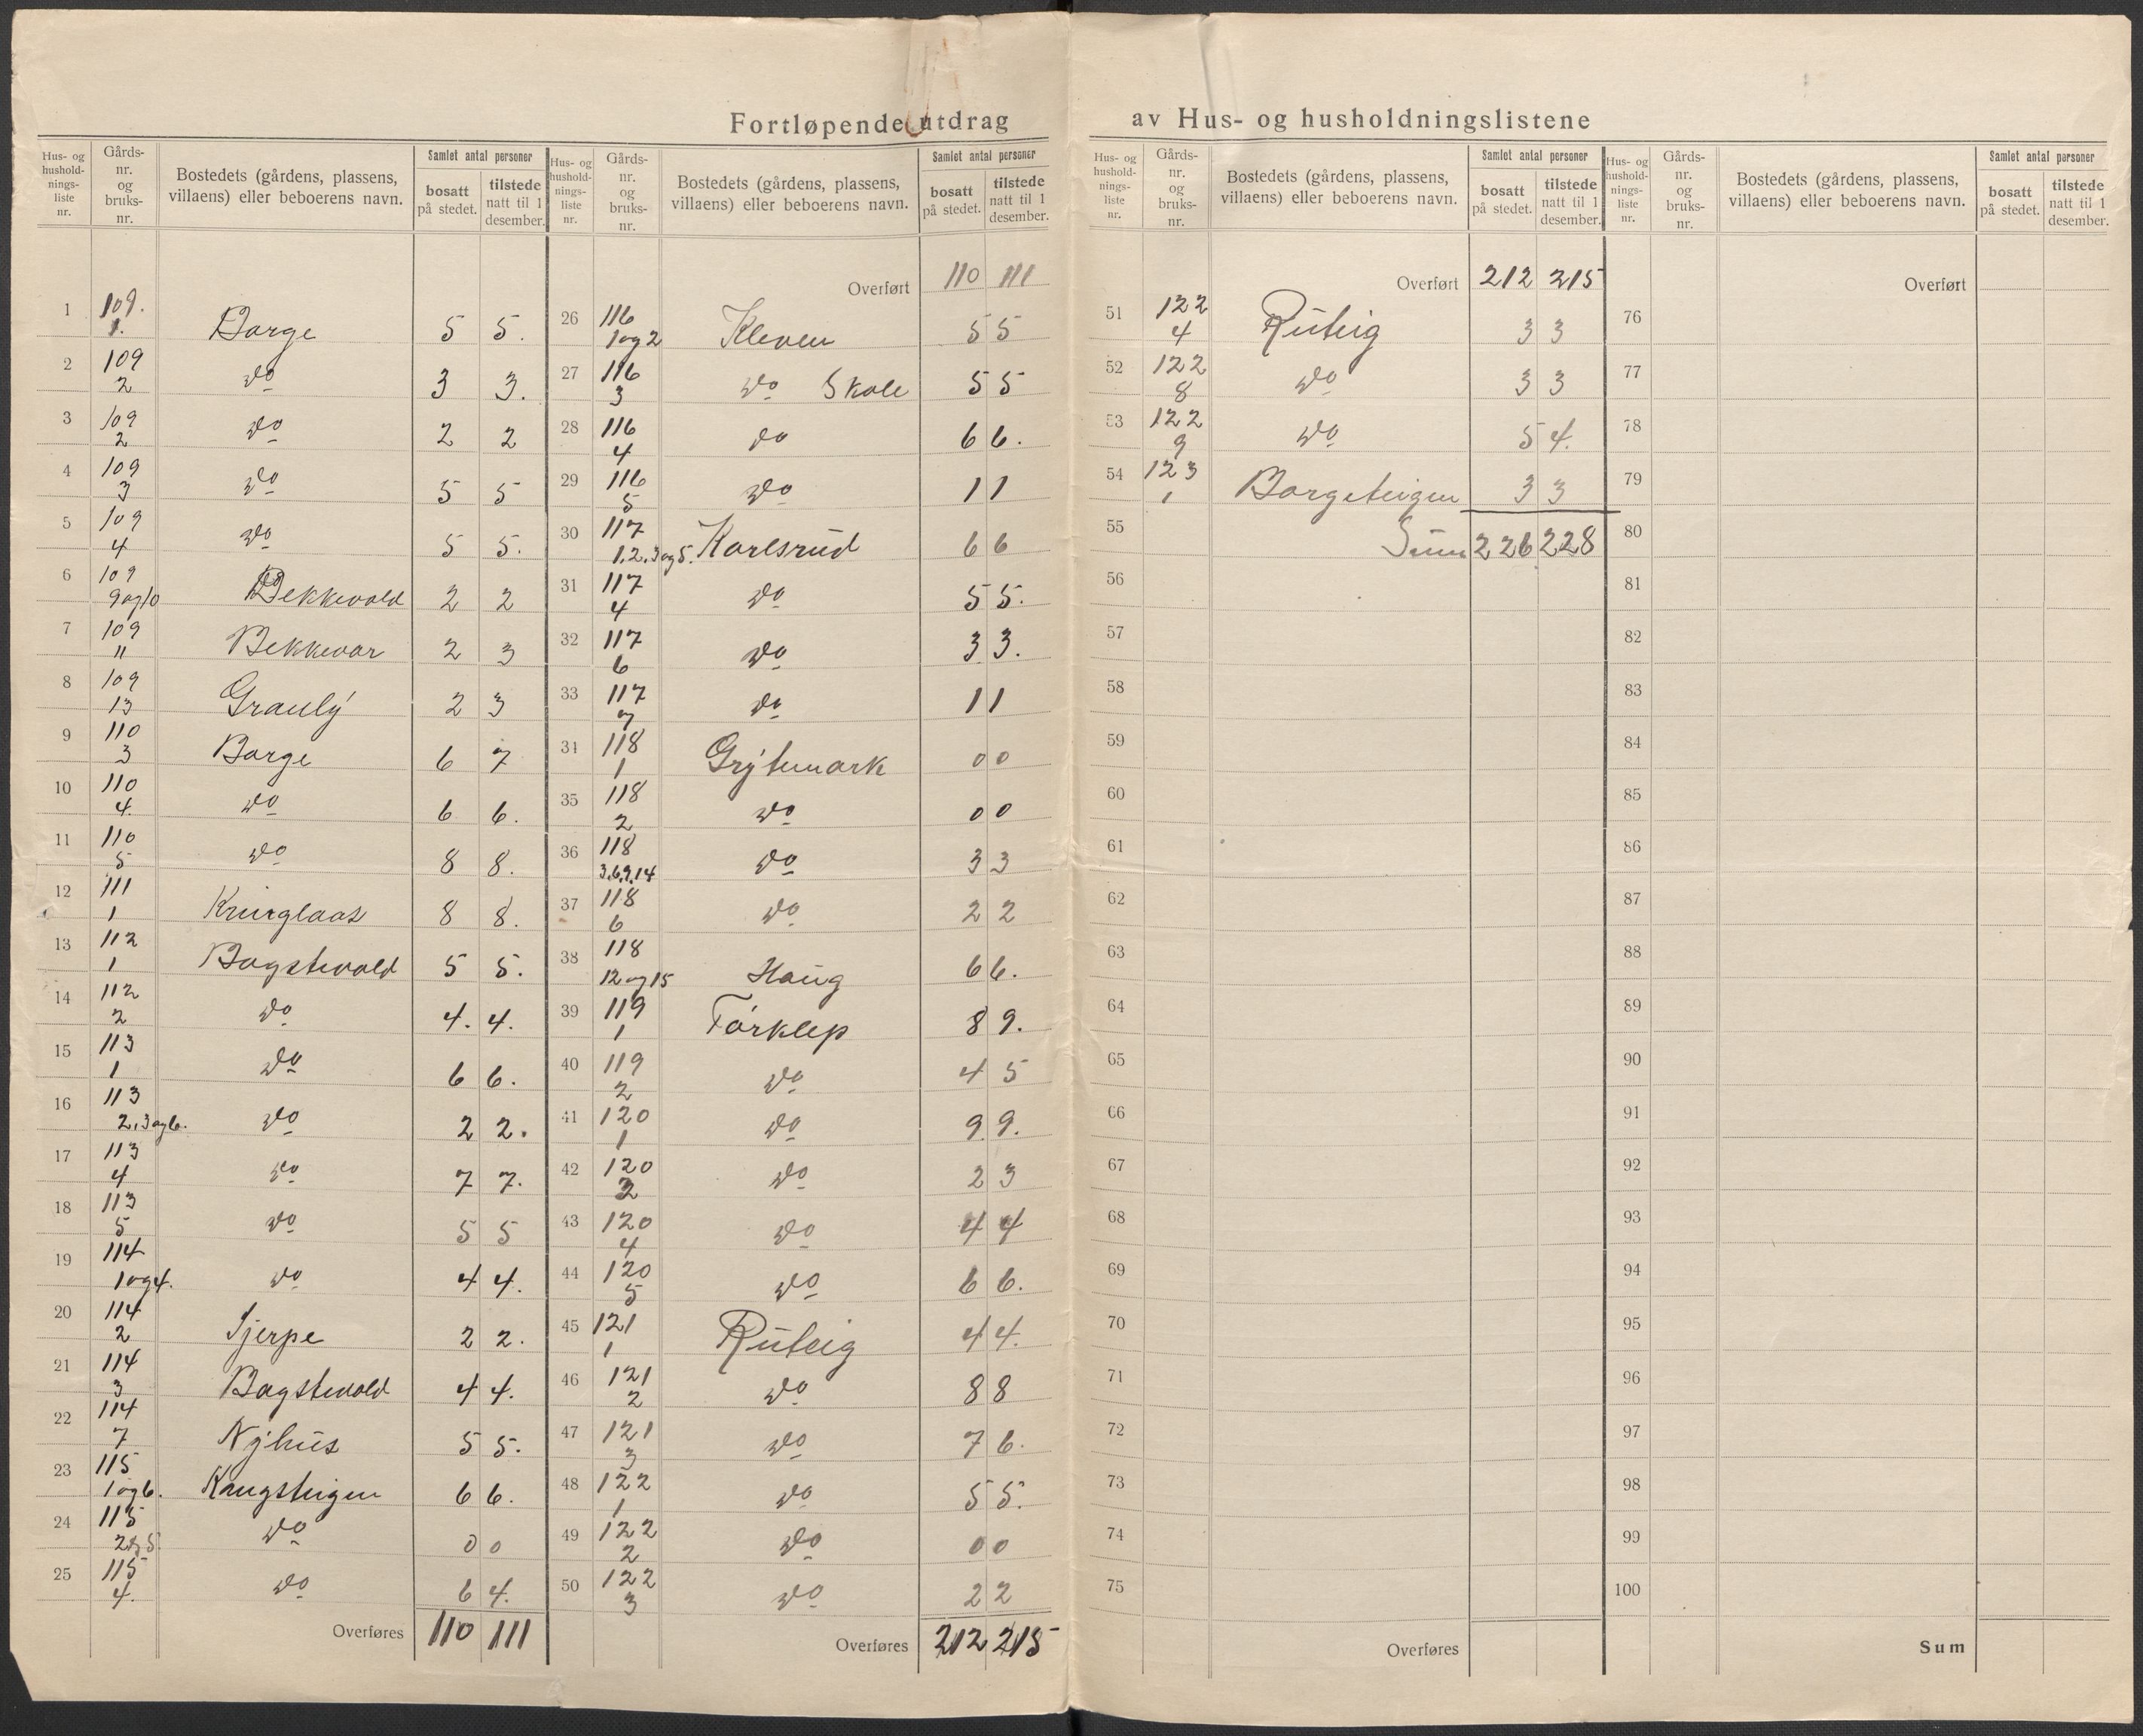 Fortløpende utdrag av Hus- og husholdningslistene
Hus- og hushold-nings-liste nr. | Gårds-nr. og bruks-nr. | Bostedets (gårdens, plassens, villaens) eller beboerens navn. | Samlet antal personer | bosatt på stedet. | tilstede natt til 1 desember.
1 109. 1. Borge 5 5.
2 109 2 do 3 3.
3 109 2 do 2 2
4 109 3 do 5 5
5 109 4 do 5 5.
6 109 9og10 Bekkevold 2 2
7 109 11 Bekkevar 2 3
8 109 13 Granly 2 3
9 110 3 Borge 6 7
10 110 4. do 6 6.
11 110 5 do 8 8.
12 111 1 8 8.
13 112 1 Bogstevold 5 5.
14 112 2 do 4. 4.
15 113 1 do 6 6.
16 113 2.3og6. do 2 2.
17 113 4 do 7 7.
18 113 5 do 5 5
19 114 1og4. do 4 4.
20 114 2 Sjerpe 2 2.
21 114 3 Bogstevold 4 4.
22 114 7 Nyhus 5 5.
23 115 1og6. Kongsteigen 6 6.
24 115 2og5 do 0 0
25 115 4. do 6 4.
Overføres 110 111
Hus- og hushold-nings-liste nr. | Gårds-nr. og bruks-nr. | Bostedets (gårdens, plassens, villaens) eller beboerens navn. | Samlet antal personer | bosatt på stedet. | tilstede natt til 1 desember.
Overført 110 111
26 116 1og2 Kleven 5 5
27 116 3 do Skole 5 5
28 116 4 do 6 6.
29 116 5 do 1 1
30 117 1.2.3og5. Karlsrud 6 6
31 117 4 do 5 5.
32 117 6 do 3 3.
33 117 7 do 1 1
34 118 1 Grytemark 0 0
35 118 2 do 0 0
36 118 3.6.9.14 do 3 3
37 118 6 do 2 2
38 118 12og15 Haug 6 6.
39 119 1 Torklep 8 9.
40 119 2 do 4 5
41 120 1 do 9 9.
42 120 2 do 2 3
43 120 4 do 4 4
44 120 5 do 6 6.
45 121 1 Ruteig 4 4.
46 121 2 do 8 8
47 121 3 do 7 6.
48 122 1 do 5 5.
49 122 2 do 0 0
50 122 3 do 2 2
Overføres 212 215
Hus- og hushold-nings-liste nr. | Gårds-nr. og bruks-nr. | Bostedets (gårdens, plassens, villaens) eller beboerens navn. | Samlet antal personer | bosatt på stedet. | tilstede natt til 1 desember.
Overført 212 215
51 122 4 Ruteig 3 3
52 122 8 do 3 3
53 122 9 do 5 4.
54 123 1 Borgeteigen 3 3
55 Sum 226 228
56
57
58
59
60
61
62
63
64
65
66
67
68
69
70
71
72
73
74
75
Overføres
Hus- og hushold-nings-liste nr. | Gårds-nr. og bruks-nr. | Bostedets (gårdens, plassens, villaens) eller beboerens navn. | Samlet antal personer | bosatt på stedet. | tilstede natt til 1 desember.
Overført
76
77
78
79
80
81
82
83
84
85
86
87
88
89
90
91
92
93
94
95
96
97
98
99
100
Sum